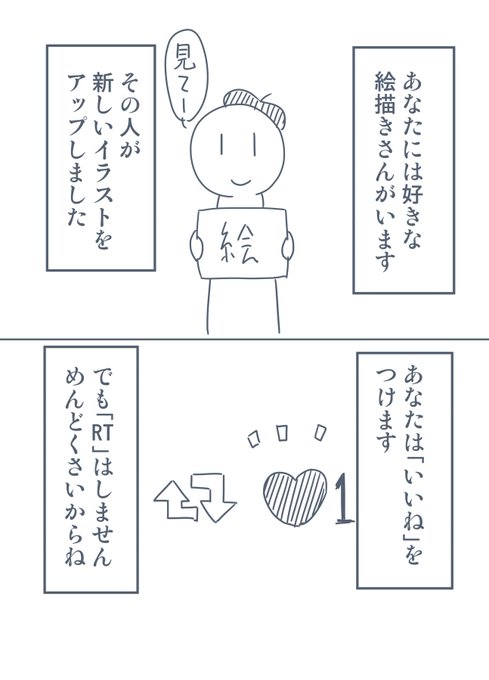 あなたには好きな
絵描きさんがいます
見てーっ
絵
その人が
新しいイラストを
アップしました
あなたは「いいね」を
つけます
1
でも「RT」はしません
めんどくさいからね